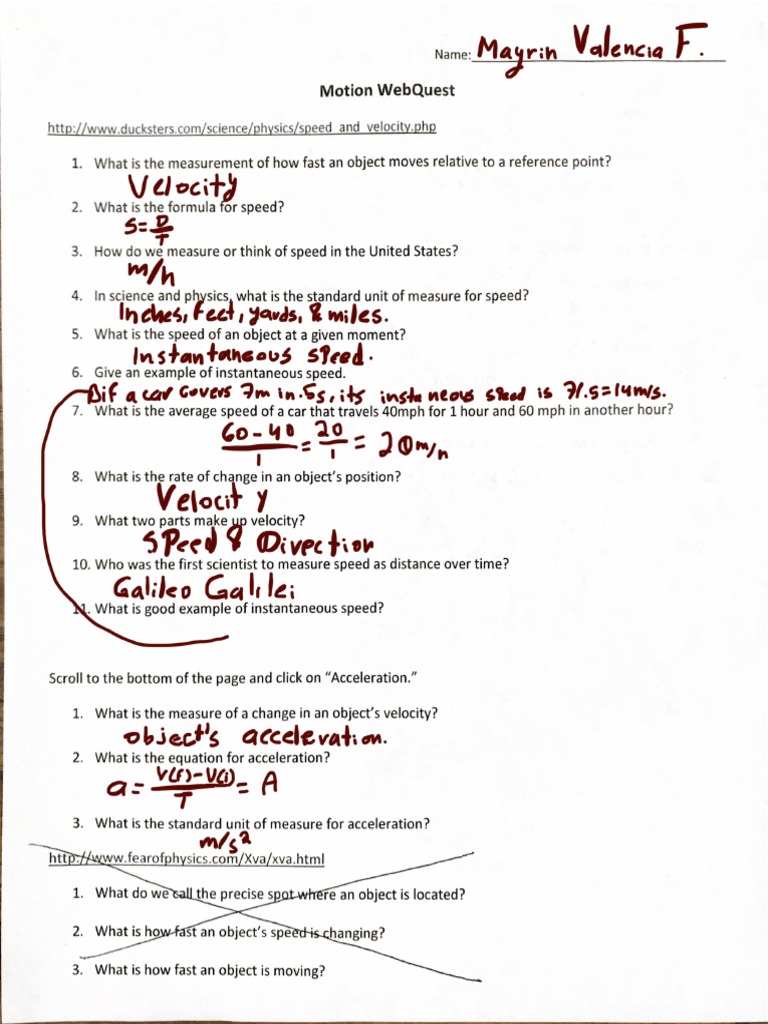 Name: Mayrin Valencia F.
Motion WebQuest
http://www.ducksters.com/science/physics/speed_and_velocity.php
1. What is the measurement of how fast an object moves relative to a reference point?
Velocity
2. What is the formula for speed?
S=D/T
3. How do we measure or think of speed in the United States?
m/h
4. In science and physics, what is the standard unit of measure for speed?
Inches, feet, yards, & miles.
5. What is the speed of an object at a given moment?
Instantaneous speed.
6. Give an example of instantaneous speed.
if a car covers 7m in .5s, its instaneous speed is 7/.5=14m/s.
7. What is the average speed of a car that travels 40mph for 1 hour and 60 mph in another hour?
60-40/1 = 20/1 = 20m/h
8. What is the rate of change in an object's position?
Velocity
9. What two parts make up velocity?
Speed & Direction
10. Who was the first scientist to measure speed as distance over time?
Galileo Galilei
11. What is good example of instantaneous speed?
Scroll to the bottom of the page and click on “Acceleration.”
1. What is the measure of a change in an object's velocity?
object's acceleration.
2. What is the equation for acceleration?
a = V(f)-V(i)/T = A
3. What is the standard unit of measure for acceleration?
m/s²
http://www.fearofphysics.com/Xva/xva.html
1. What do we call the precise spot where an object is located?
2. What is how fast an object's speed is changing?
3. What is how fast an object is moving?